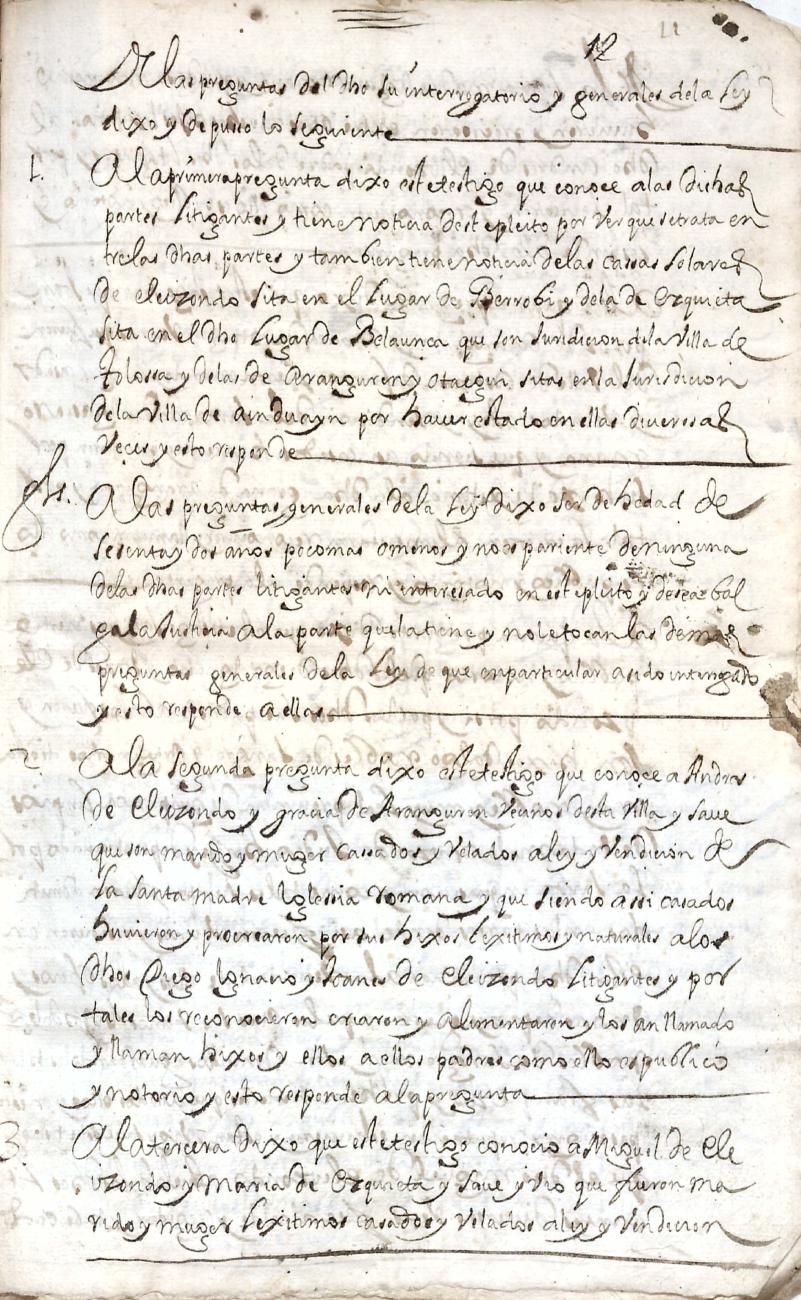 12
A las preguntas del dho su interrogatorio y generales dela Ley
dixo y depusso lo seguiente
1. A la primera pregunta dixo estetestigo que conoce alas dichas
partes Litigantes y tiene noticia deste pleito por ver que setrata en
trelas dhas partes y tambien tiene noticia delas cassas solares
de eleizondo sita en el Lugar de Berrobi y dela de Ezquieta
sita en el dho Lugar de Belaunça que son Juridicion dela Villa de
Tolossa y delas de Aranguren y otaegui sitas en la Jurisdicion
dela Villa de Ainduayn por haver estado en ellas diverssas
veçes y esto responde
gls. A las preguntas generales dela Ley dixo ser de hedad de
sesenta y dos años poco mas omenos y no es pariente de ninguna
delas dhas partes litigantes ni interesado en este pleito y desea bal
ga la Justicia a la parte que la tiene y no le tocan las demas
preguntas generales dela Ley de que en particular a sido
y esto responde a ellas
2. A la segunda pregunta dixo estetestigo que conoçe a Andres
de Eleizondo y graçia de Aranguren Vecinos desta Villa y save
que son marido y muger cassados y Velados a ley y Vendicion de
la santa madre Iglessia Romana y que siendo assi casados
huvieron y procrearon por sus hixos Lexitimos y naturales a los
dhos Diego Ignaçio y Joanes de Eleizondo Litigantes y por
tales los reconocieron criaron y alimentaron y los an llamado
y llaman hixos y ellos a ellos padres como ello es publico
y notorio y esto responde a la pregunta
3. A la tercera dixo que estetestigo conocio a Miguel de Ele
izondo y Maria de Ezquieta y save y vio que fueron ma
rido y muger Lexitimos casados y Velados a ley y Vendicion